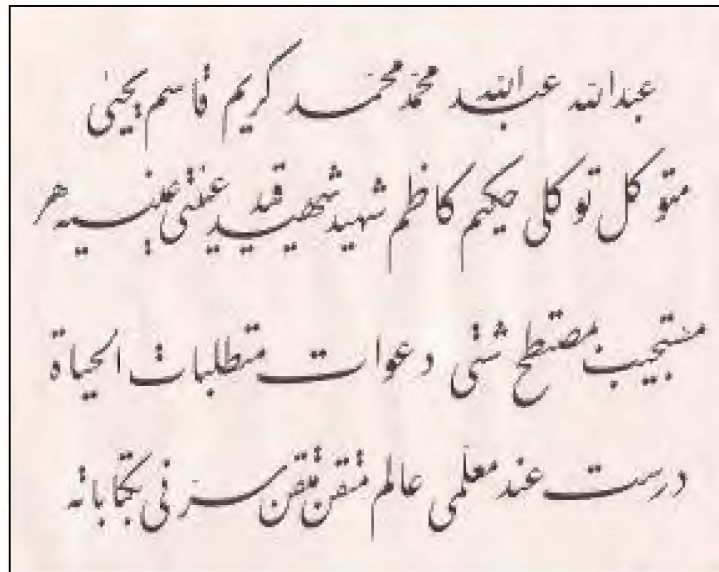 عبدالله عبدالله محمد محمد كريم قاسم يحيى
متوكل توكلى حكيم كاظم شهيد شهيد قيد عينيه هر
مستجيب شتى دعوات متطلبات الحياة
درست عند معلمى عالم متقن متقن سر فى